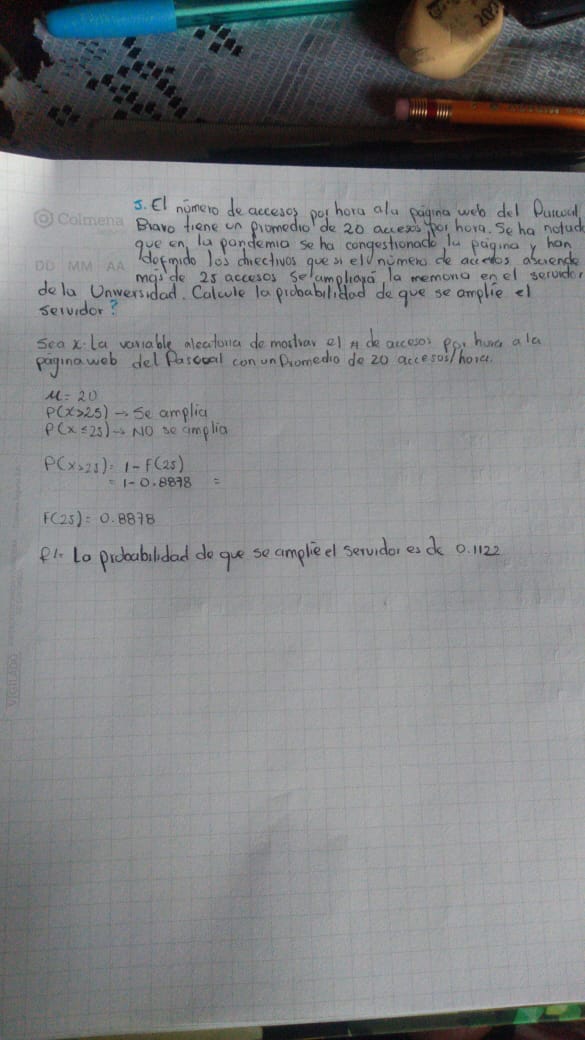 5. El número de accesos por hora a la página web del Pascual
Colmena
Bravo tiene un promedio de 20 accesos por hora. Se ha notado
que en la pandemia se ha congestionado la página y han
DD MM AA
definido los directivos que si el número de accesos asciende
más de 25 accesos se ampliará la memoria en el servidor
de la Universidad. Calcule la probabilidad de que se amplíe el
servidor?
Sea x: La variable aleatoria de mostrar el # de accesos por hora a la
página web del Pascual con un Promedio de 20 accesos/hora.
μ= 20
P(x>25) → Se amplia
P(x≤25) → NO se amplia
P(x>25)= 1-F(25)
= 1-0.8878 =
F(25)= 0.8878
R/= La probabilidad de que se amplie el servidor es de 0.1122
VIGILADO